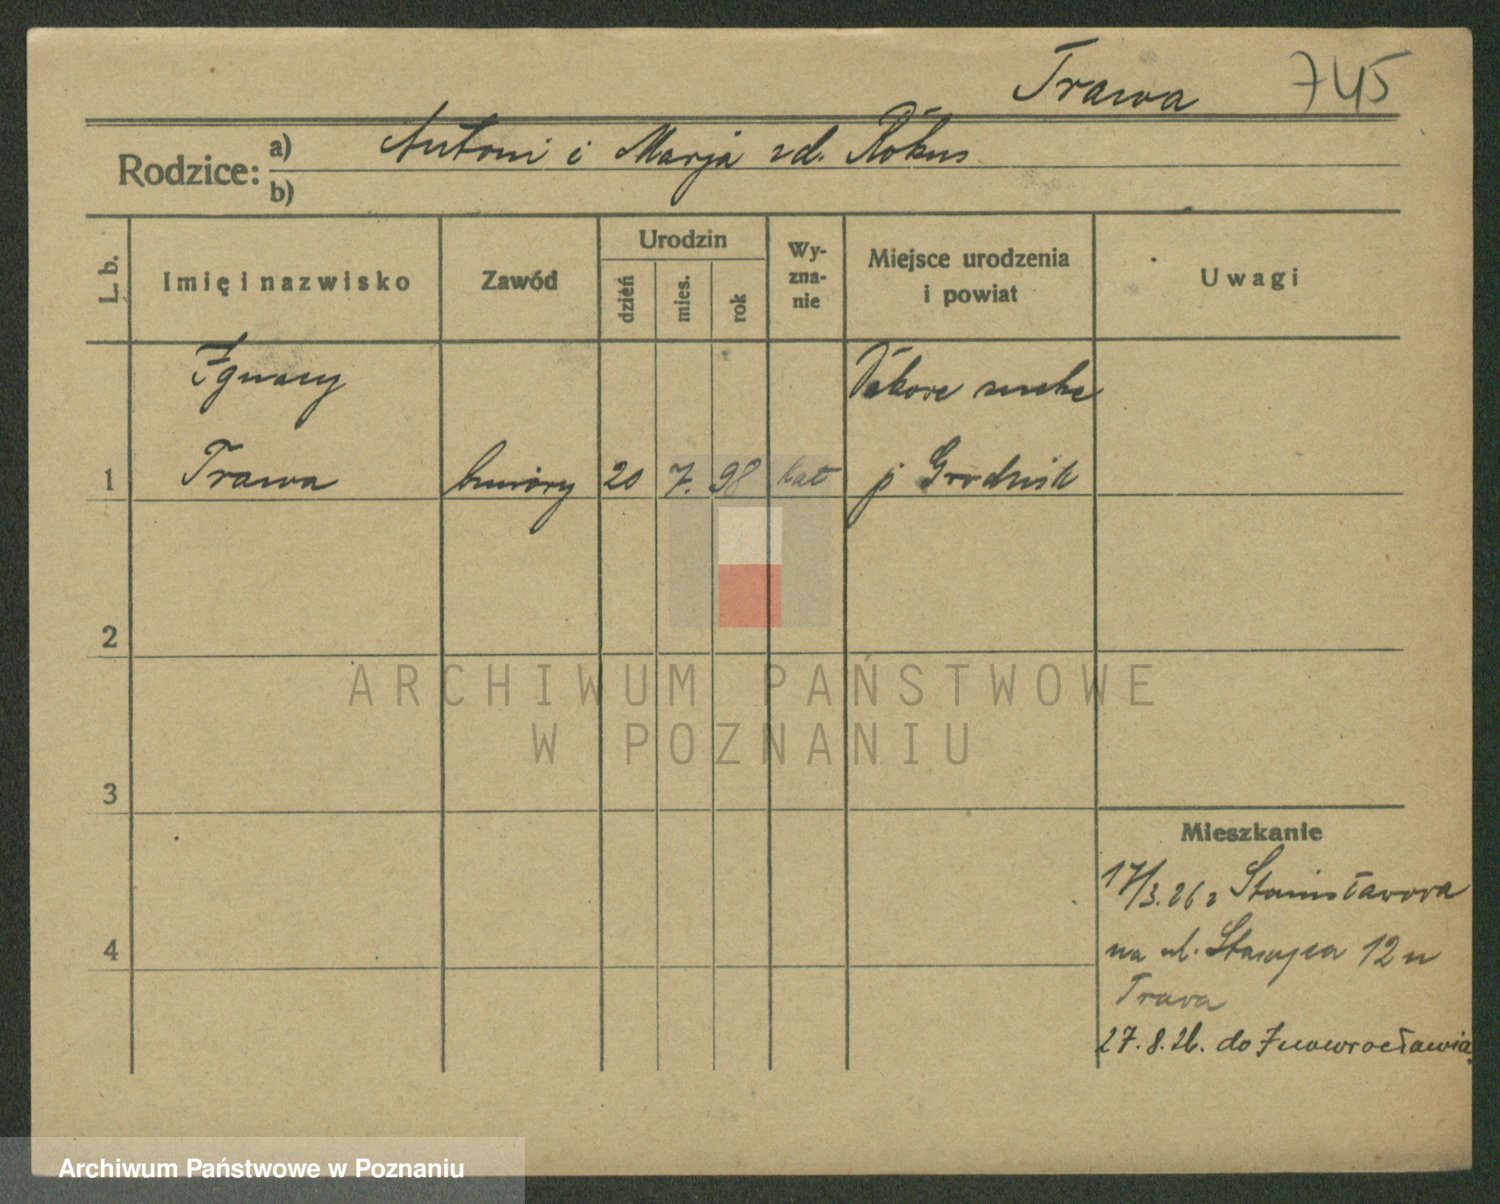 Trawa 745
Rodzice: a) Antoni i Marja zd. Rókus
b)
L. b. Imię i nazwisko Zawód Urodzin dzień mies. rok Wyznanie Miejsce urodzenia i powiat Uwagi
Ignacy
1 Trawa 20 7. 98 kat p Grodzisk
2
3
4
Mieszkanie
17/3.26 z Stanisławowa
na ul. 12 u
Trawa
27.8.26. do Inowrocławia
ARCHIWUM PAŃSTWOWE
W POZNANIU
Archiwum Państwowe w Poznaniu